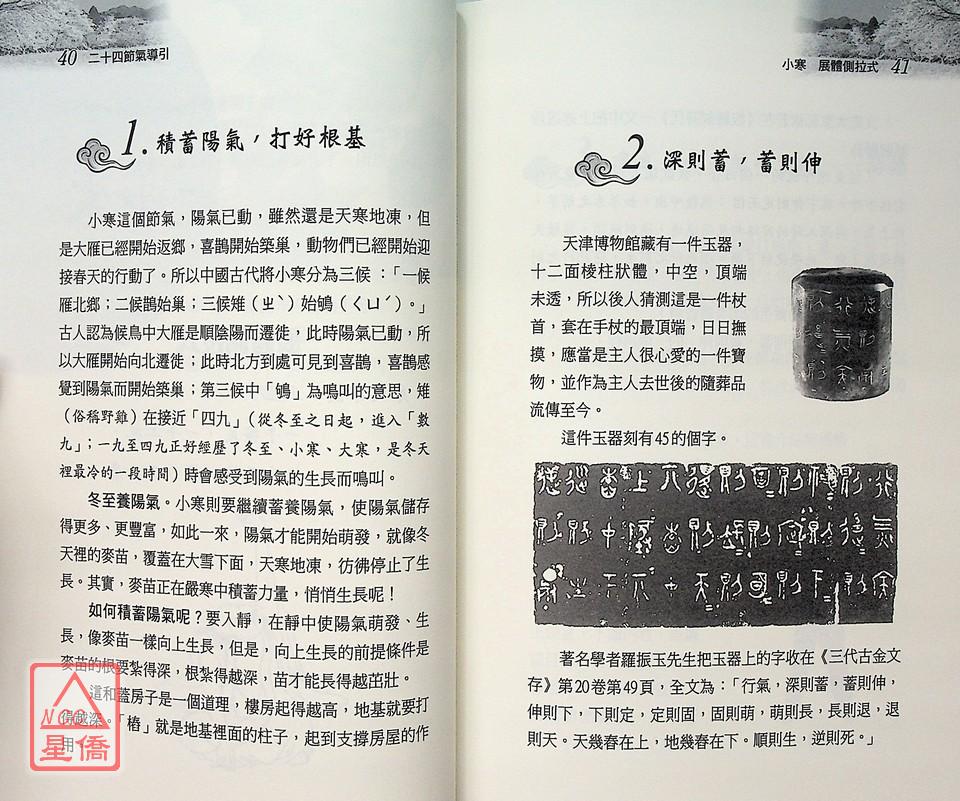 40 二十四節氣導引
1. 積蓄陽氣，打好根基
小寒這個節氣，陽氣已動，雖然還是天寒地凍，但
是大雁已經開始返鄉，喜鵲開始築巢，動物們已經開始迎
接春天的行動了。所以中國古代將小寒分為三候：「一候
雁北鄉；二候鵲始巢；三候雉（ㄓˋ）始鴝（ㄑㄩˊ）。」
古人認為候鳥中大雁是順陰陽而遷徙，此時陽氣已動，所
以大雁開始向北遷徙；此時北方到處可見到喜鵲，喜鵲感
覺到陽氣而開始築巢；第三候中「鴝」為鳴叫的意思，雉
（俗稱野雞）在接近「四九」（從冬至之日起，進入「數
九」；一九至四九正好經歷了冬至、小寒、大寒，是冬天
裡最冷的一段時間）時會感受到陽氣的生長而鳴叫。
冬至養陽氣。小寒則要繼續蓄養陽氣，使陽氣儲存
得更多、更豐富，如此一來，陽氣才能開始萌發，就像冬
天裡的麥苗，覆蓋在大雪下面，天寒地凍，彷彿停止了生
長。其實，麥苗正在嚴寒中積蓄力量，悄悄生長呢！
如何積蓄陽氣呢？要入靜，在靜中使陽氣萌發、生
長，像麥苗一樣向上生長，但是，向上生長的前提條件是
麥苗的根要紮得深，根紮得越深，苗才能長得越茁壯。
這和蓋房子是一個道理，樓房起得越高，地基就要打
得越深。「樁」就是地基裡面的柱子，起到支撐房屋的作
用
NCC
星僑
小寒 展體側拉式 41
2. 深則蓄，蓄則伸
天津博物館藏有一件玉器，
十二面棱柱狀體，中空，頂端
未透，所以後人猜測這是一件杖
首，套在手杖的最頂端，日日撫
摸，應當是主人很心愛的一件寶
物，並作為主人去世後的隨葬品
流傳至今。
這件玉器刻有45的個字。
著名學者羅振玉先生把玉器上的字收在《三代古金文
存》第20卷第49頁，全文為：「行氣，深則蓄，蓄則伸，
伸則下，下則定，定則固，固則萌，萌則長，長則退，退
則天。天幾舂在上，地幾舂在下。順則生，逆則死。」